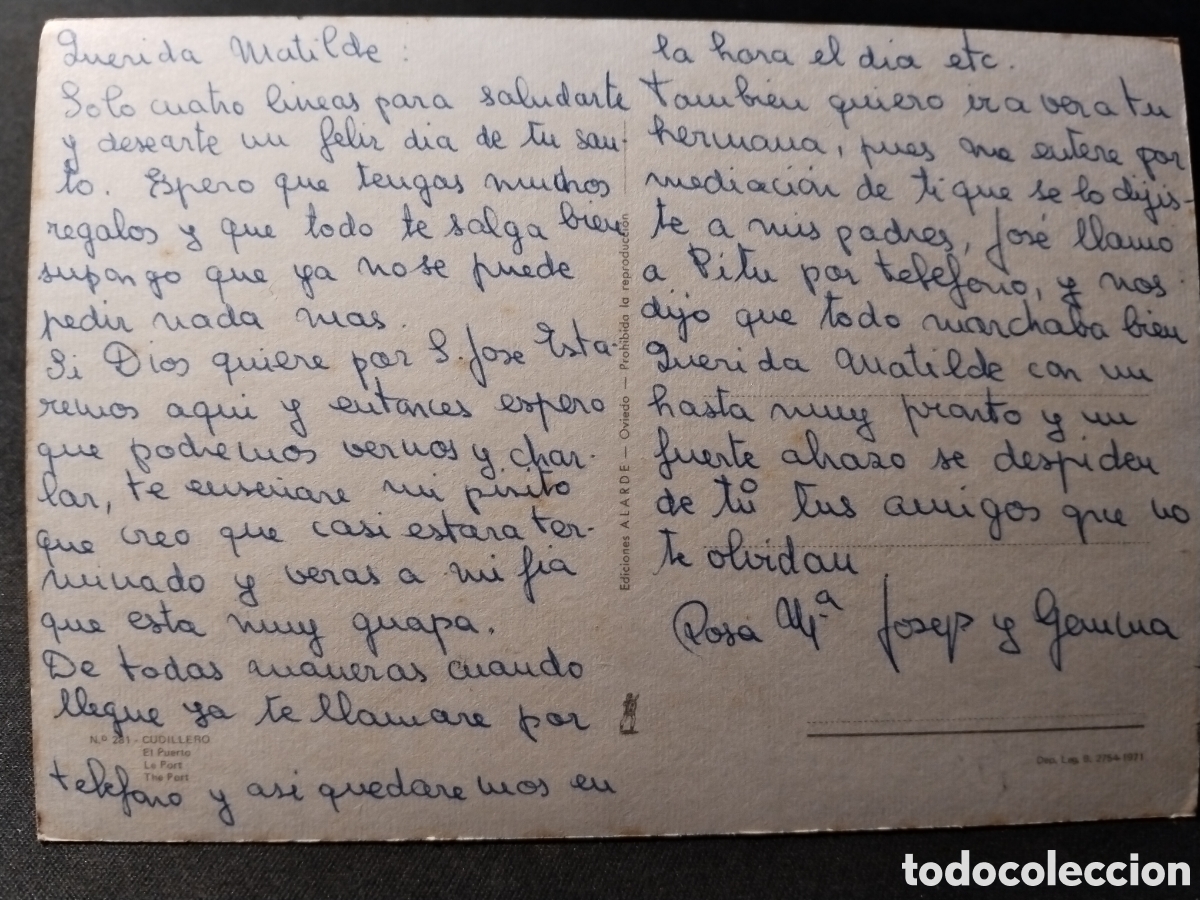 Querida Matilde:
Solo cuatro lineas para saludarte
y desearte un feliz dia de tu san-
to. Espero que tengas muchos
regalos y que todo te salga bien
supongo que ya no se puede
pedir nada mas.
Si Dios quiere por S. Jose Esta-
remos aqui y entonces espero
que podremos vernos y char-
lar, te enseñare mi pisito
que creo que casi estara ter-
minado y veras a mi fia
que esta muy guapa.
De todas maneras cuando
llegue ya te llamare por
telefono y asi quedaremos en
la hora el dia etc.
También quiero ir a ver a tu
hermana, pues me entere por
mediación de ti que se lo dijis-
te a mis padres, José llamo
a Pitu por telefono, y nos
dijo que todo marchaba bien
Querida Matilde con un
hasta muy pronto y un
fuerte abrazo se despiden
de tú tus amigos que no
te olvidan
Rosa Mª Josep y Gemma
Ediciones ALARDE — Oviedo — Prohibida la reproducción
N.º 281 - CUDILLERO
El Puerto
Le Port
The Port
Dep. Leg. B. 2754-1971
todocoleccion